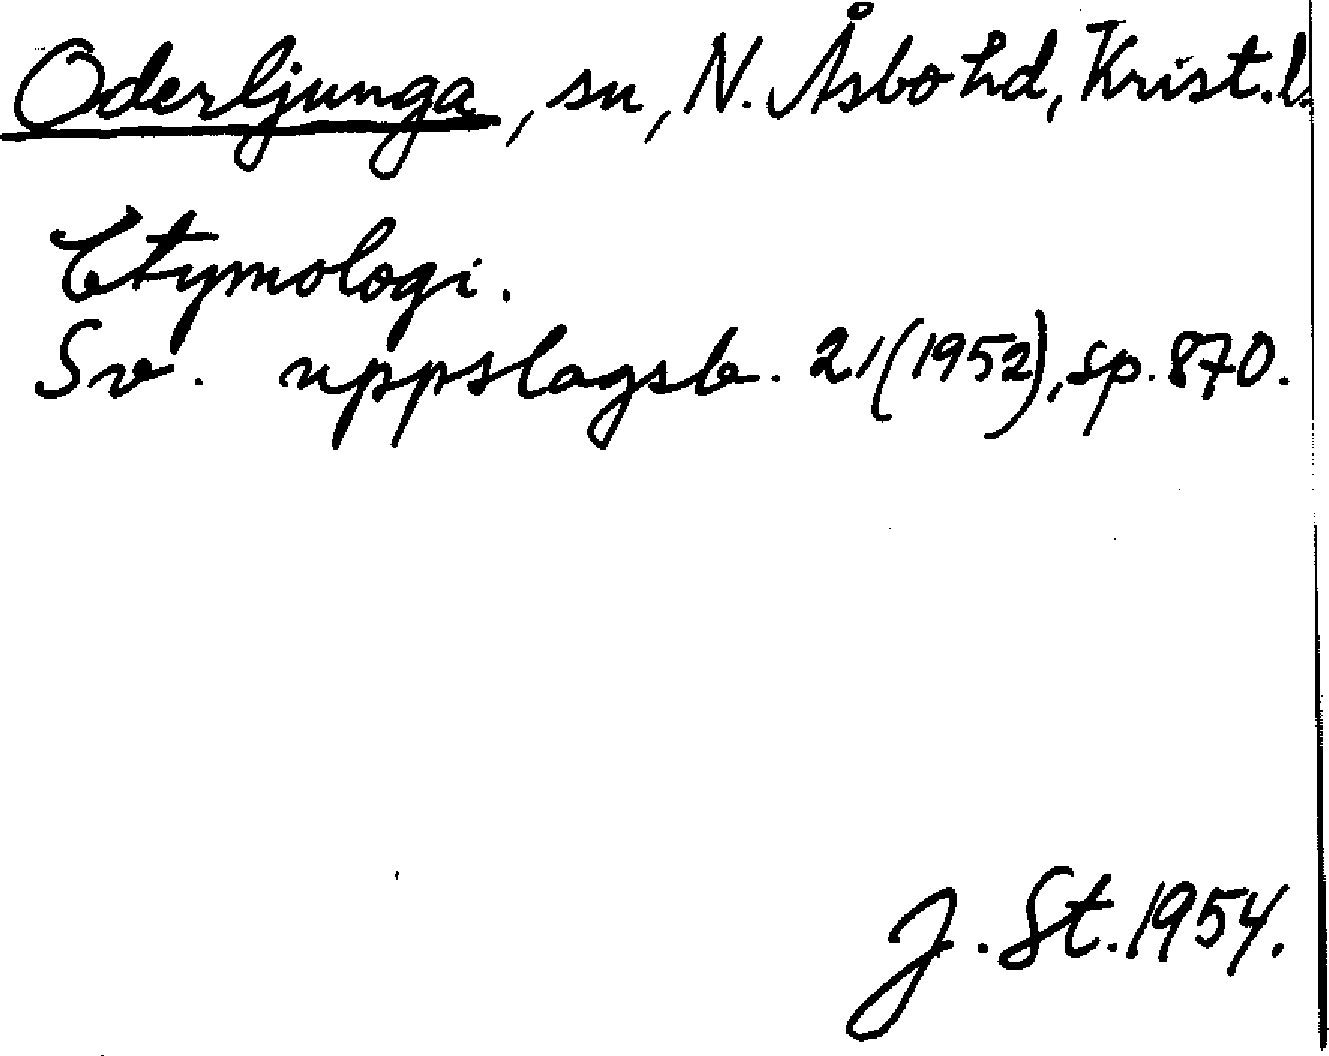 Oderljunga, sn, N. Åsbo hd, Krist. l.
Etymologi.
Sv. uppslagsb. 21 (1952), sp. 870.
J. St. 1954.